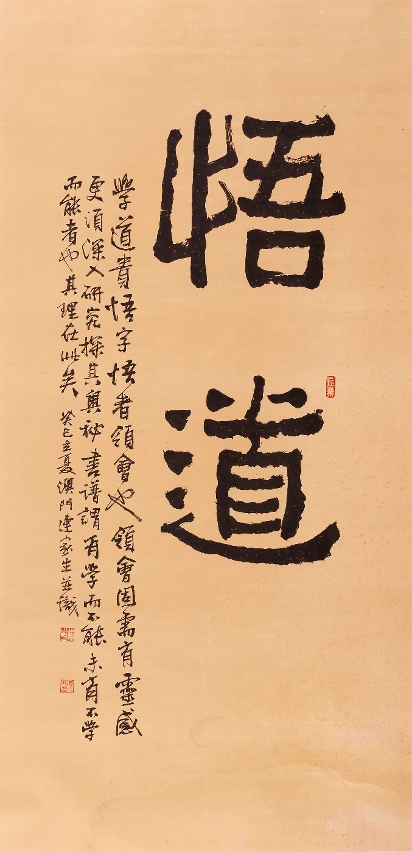 悟道
學道貴悟字悟者領會也領會固需有靈感
更須深入研究探其奧秘書譜謂有學而不能未有不學
而能者也其理在此矣
癸巳立夏澳門連家生並識